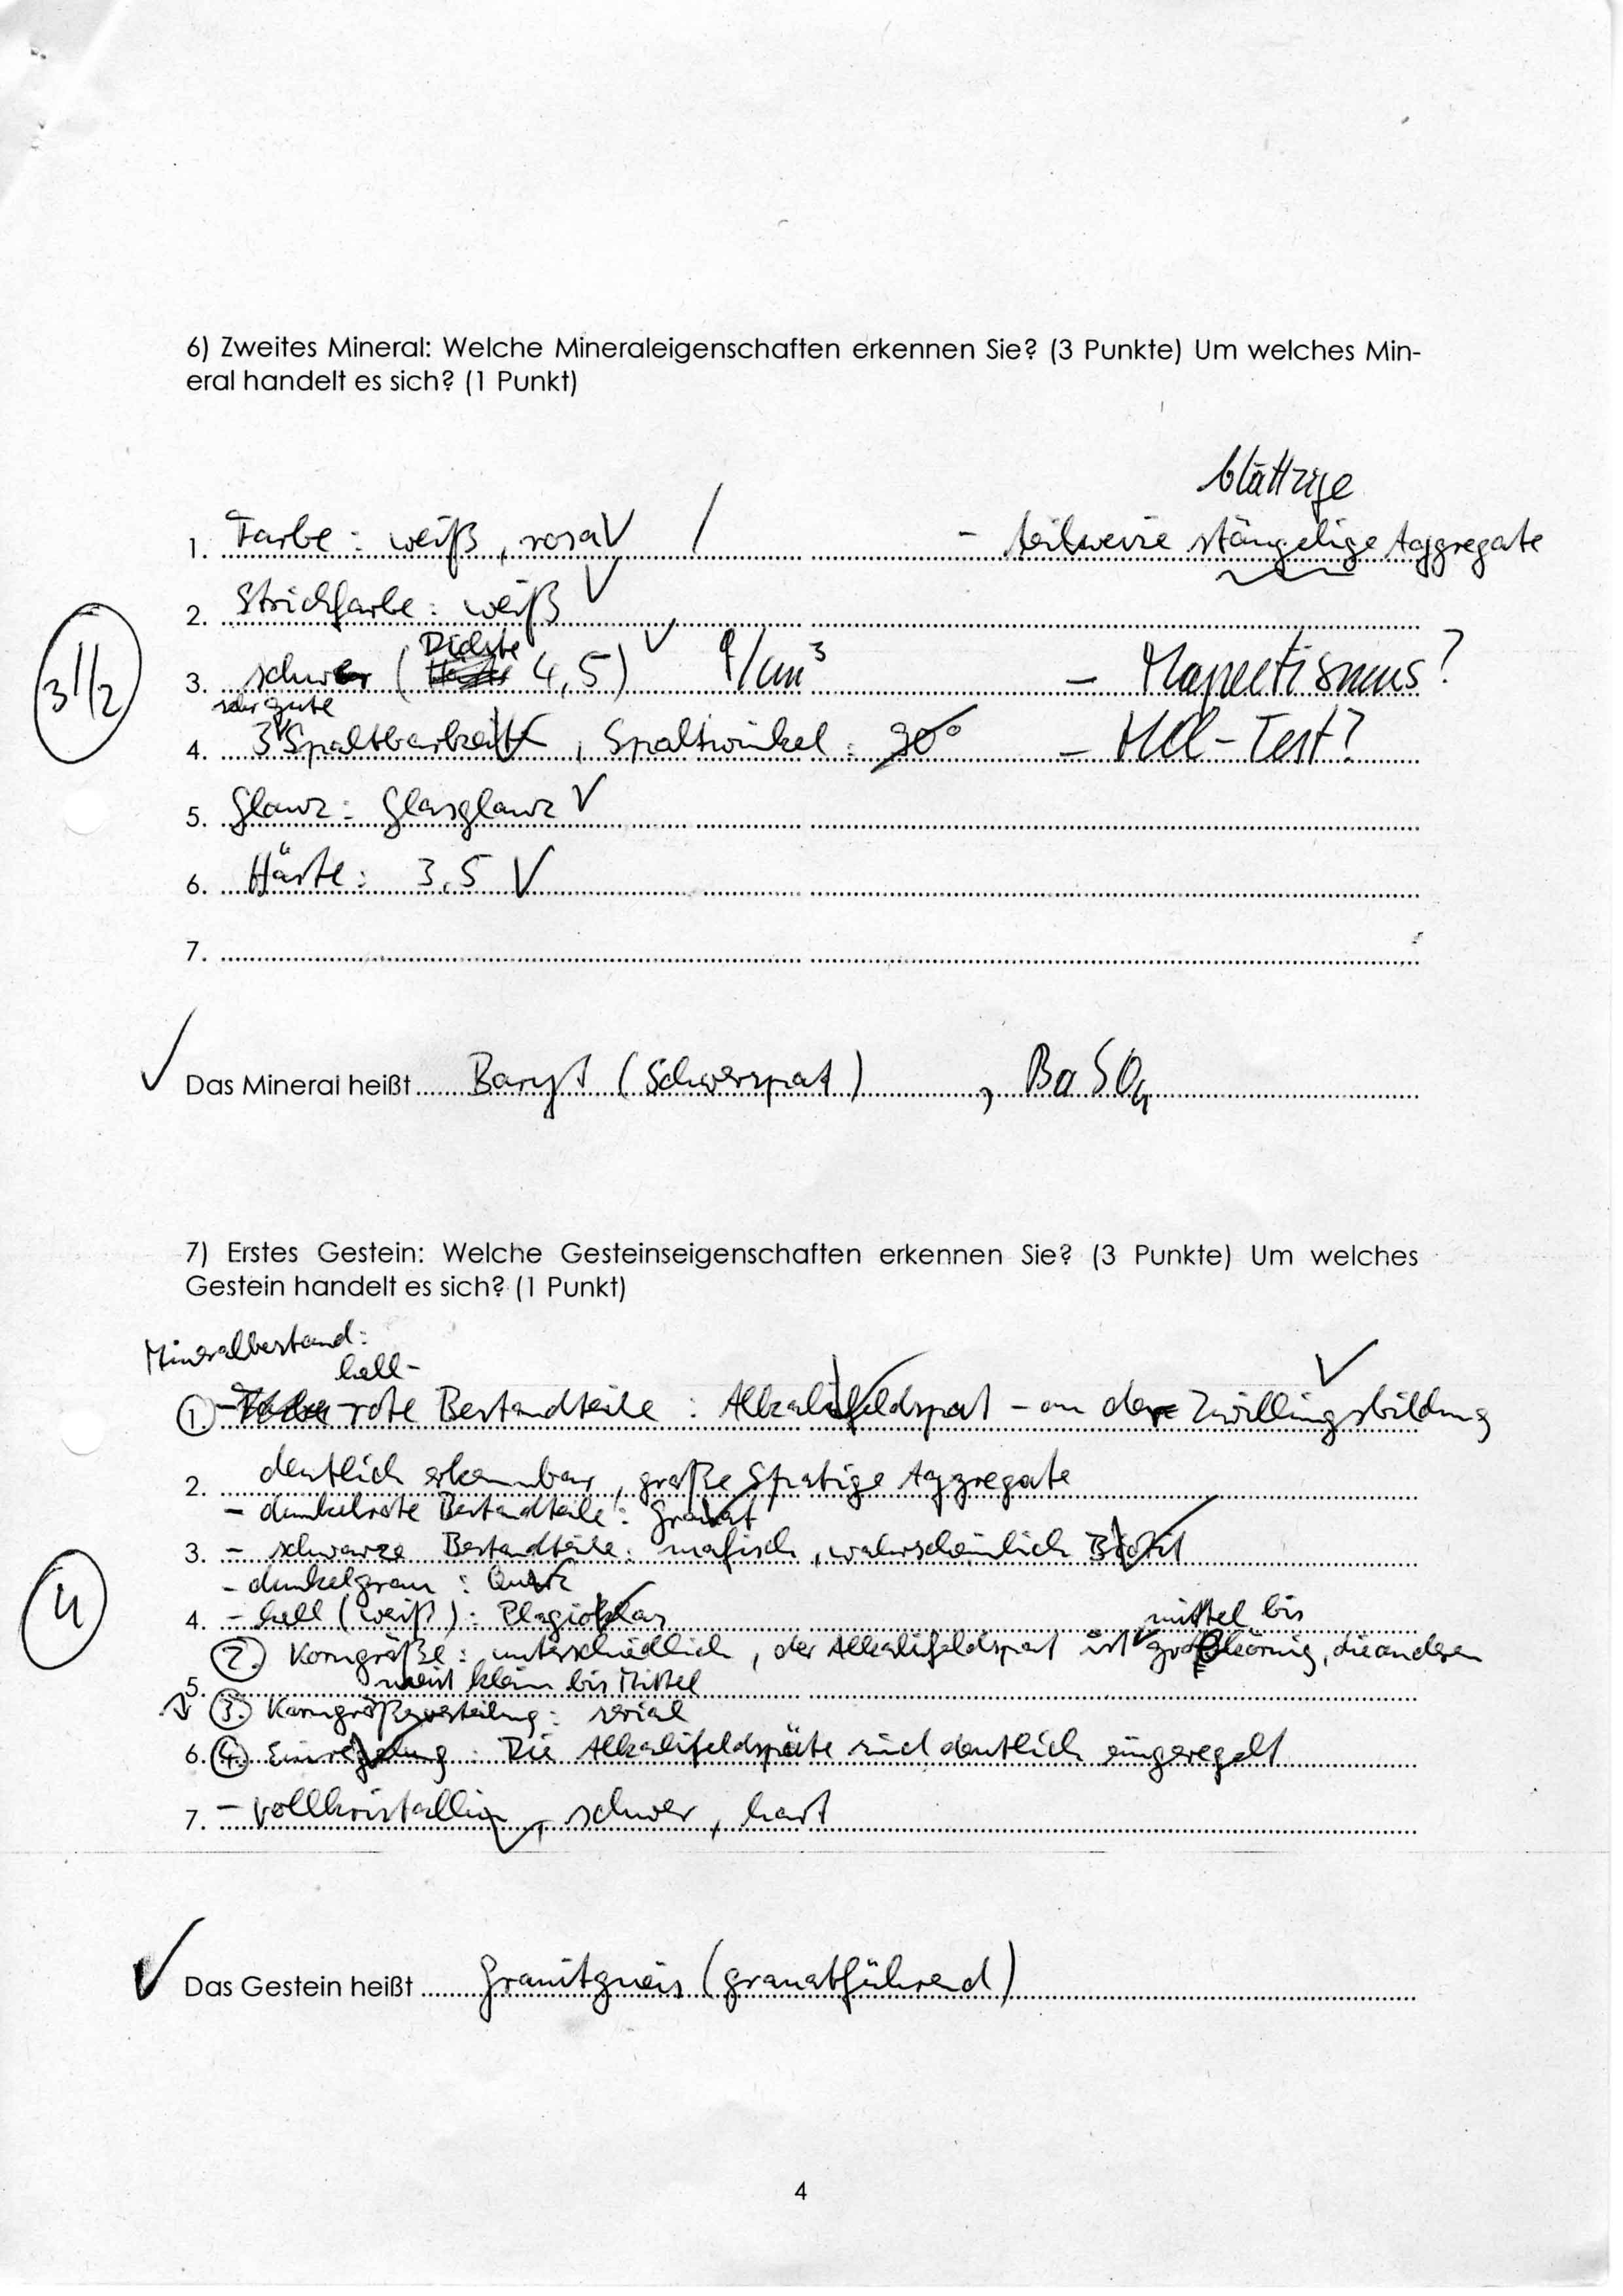 6) Zweites Mineral: Welche Mineraleigenschaften erkennen Sie? (3 Punkte) Um welches Min-
eral handelt es sich? (1 Punkt)
blättrige
1. Farbe: weiß, rosa - teilweise stängelige Aggregate
2. Strichfarbe: weiß
Dichte
3. schwer ( 4,5) g/cm³ - Magnetismus?
3 1/2
sehr gute
4. 3 Spaltbarkeit, Spaltwinkel: 90° - HCl-Test?
5. Glanz: Glasglanz
6. Härte: 3,5
7.
Das Mineral heißt Baryt (Schwerspat), BaSO4
7) Erstes Gestein: Welche Gesteinseigenschaften erkennen Sie? (3 Punkte) Um welches
Gestein handelt es sich? (1 Punkt)
Mineralbestand:
hell-
1. - rote Bestandteile: Alkalifeldspat - an der Zwillingsbildung
2. deutlich erkennbar, große spatige Aggregate
- dunkelrote Bestandteile: Granat
3. - schwarze Bestandteile: mafisch, wahrscheinlich Biotit
- dunkelgrau: Quarz
4. - hell (weiß): Plagioklas
mittel bis
2. Korngröße: unterschiedlich, der Alkalifeldspat ist großkörnig, die anderen
5. meist klein bis Mittel
3. Korngrößenverteilung: serial
4
6. 4. Einregelung: Die Alkalifeldspäte sind deutlich eingeregelt
7. - vollkristallin, schwer, hart
Das Gestein heißt Granitgneis (granatführend)
4